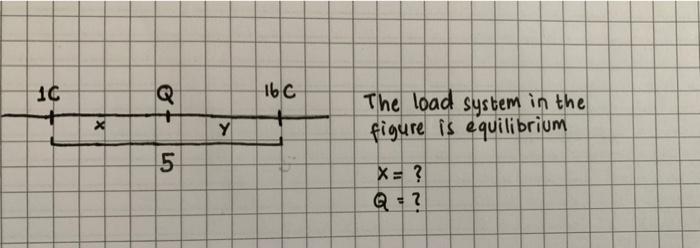 1C Q 16C
x y
5
The load system in the
figure is equilibrium
X = ?
Q = ?